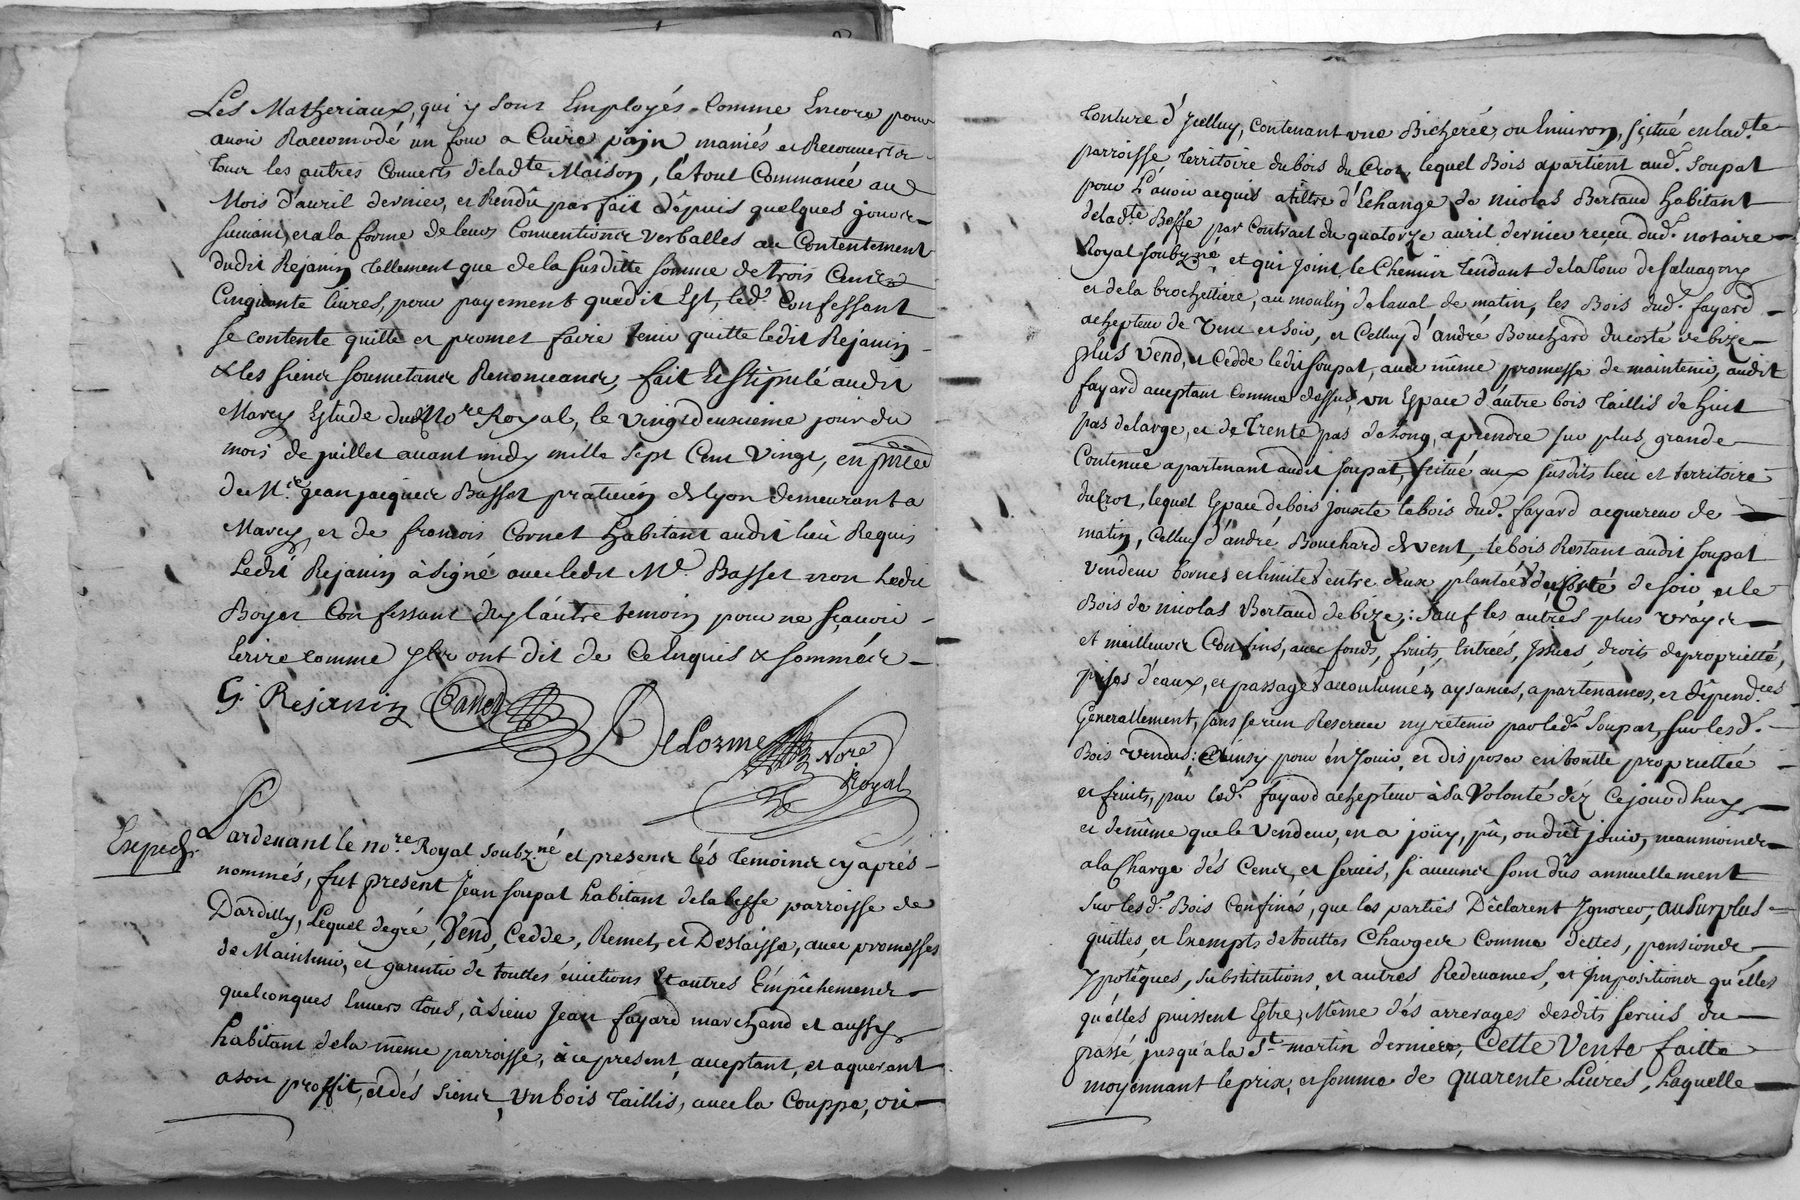 Les Matheriaux, qui y sont Employés. Comme Encore pour
avoir Racomodé un four a Cuire pain maniés et Recouvert a
tour les autres Couverts delad.te Maison, lé tout Commancé au
Mois d'auril dernier, et Rendu parfait dépuis quelques jours
suivant et a la forme de leurs Conventions verballes au Contentement
dudit Rejanin tellement que de la susditte somme de trois Cents
Cinquante livres, pour payement quedit Est, led.t Confessant
se contente quitte et promet faire tenir quitte ledit Rejanin
& les siens soumetances Renonceances, fait Et Stipulé audit
Marcy Estude dud No.re Royal, le vingtdeuxieme jour du
mois de juillet avant midy mille sept Cent vingt, en p̃nce
de M.re Jean jacques Basset praticien de lyon demeurant a
Marcy, et de francois Cornet habitant audit lieu Requis
Ledit Rejanin à signé avec ledit M.e Basset non Ledit
Boyer Confessant ny l'autre temoin pour ne sçavoir
Ecrire comme Ils ont dit de Ce Enquis & Sommés
G. Rejanin Delorme
No.re
Royal
Expedé
Pardevant le no.re Royal soubz.né et presens lés temoins cy aprés
nommés, fut present Jean soupat habitant de la besse parroisse de
Dardilly, Lequel degré, Vend, Cedde, Remet, et Deslaisse, avec promesses
de Maintenir, et garentir de touttes évictions Et autres Empêchements
quelconques Envers tous, à sieur Jean fayard marchand et aussy
habitant de la même parroisse, à ce present, acceptant, et aquerant
a son proffit, et dés siens, un bois taillis, avec la Couppe, ou
tonture d'Jcelluy, Contenant une Bicherée, ou Environ, scitué en lad.te
parroisse territoire du bois du Crot, lequel Bois apartient aud.t Soupat
pour L'avoir acquis a tiltre d'Echange de nicolas Bertaud habitant
delad.te Besse par Contract du quatorze auril dernier reçeu dud.t notaire
Royal soubz.né, et qui Joint, le Chemin tendant de la tour de salvagny
et de la brochetiere, au moulin de laval de matin, les Bois dud.t fayard
achepteur de Vent et soir, et Celluy d'andré Bouchard du costé de bize
plus Vend, et Cedde ledit soupat, avec même promesse de maintenir, audit
fayard acceptant comme dessus, un Espace d'autre bois taillis de huit
pas de large, et de trente pas de long, a prendre sur plus grande
Contenue apartenant audit soupat, scitué aux susdits lieu et territoire
du Crot, lequel Espace de bois jouxte le bois dud.t fayard acquereur de
matin, Celluy d'andré Bouchard de vent, le bois Restant audit soupat
vendeur bornes et limites entre deux plantées du Costé de soir, et le
Bois de nicolas Bertaud de bize; Sauf les autres plus vrays
et meilleurs Confins, avec fonds, fruits, Entrées, Jssues, droits de proprietté,
prises d'eaux, et passages accoutumés, aysances, apartenances, et dépend.ces
Generallement, sans se rien Reserver ny retenir par led.t Soupat, sur lesd.ts
Bois vendus: et ainsy pour en Jouir, et disposer en toutte propriettée
et fruits, par led.t fayard achepteur à sa Volonté déz Cejourdhuy
et de même que le Vendeur, en a joüy, pû, ou dû jouir, neanmoins
a la Charge dés Cens, et servis, si aucuns sont dûs annuellement
sur lesd.ts Bois Confinés, que les parties Déclarent Ignorer, au surplus
quittes, et Exempts de touttes Charges Comme dettes, pensions
Ypotêques, substitutions, et autres Redevances, et Impositions qu'elles
qu'elles puissent Estre, Même dés arrerages desdits servis du
passé jusqu'a la S.t martin derniere, Cette Vente faitte
moyennant le prix, et somme de quarente Livres, Laquelle